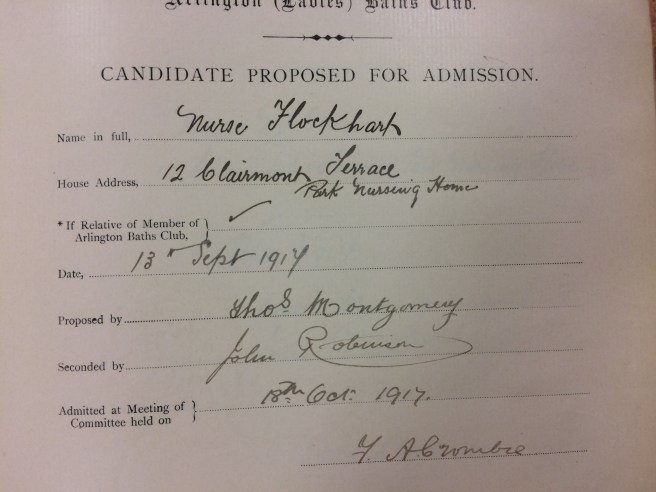 Arlington (Ladies) Baths Club.
CANDIDATE PROPOSED FOR ADMISSION.
Name in full, Nurse Flockhart
House Address, 12 Clairmont Terrace
Park Nursing Home
* If Relative of Member of
Arlington Baths Club, ✓
Date, 13th Sept 1917
Proposed by Thos. Montgomery
Seconded by John Robinson
Admitted at Meeting of
Committee held on 18th Oct. 1917.
F. A Crombie